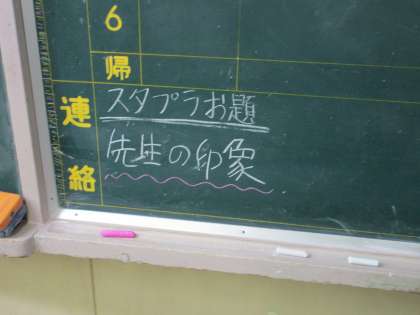 6
帰
連絡
スタプラお題
先生の印象